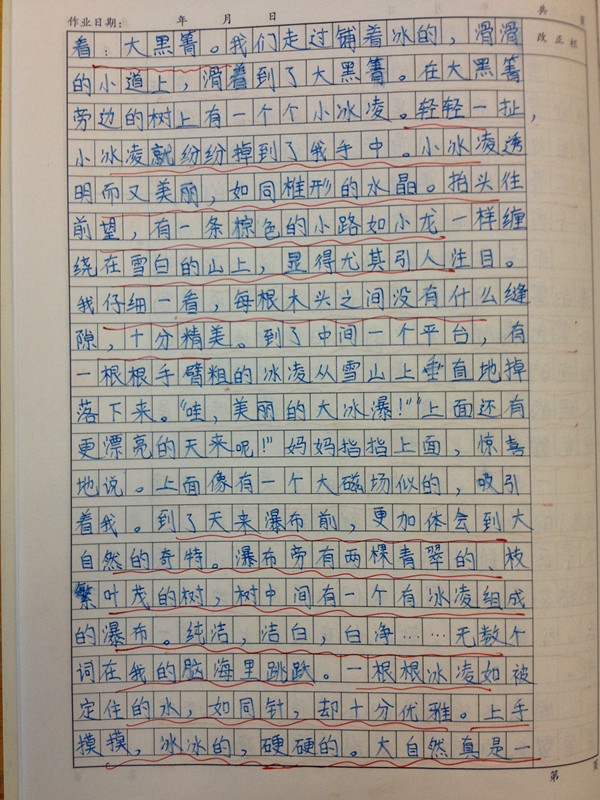 作业日期： 年 月 日
共 页
改正栏
看：大黑箐。我们走过铺着冰的，滑滑
的小道上，滑着到了大黑箐。在大黑箐
旁边的树上有一个个小冰凌。轻轻一扯，
小冰凌就纷纷掉到了我手中。小冰凌透
明而又美丽，如同椎形的水晶。抬头往
前望，有一条棕色的小路如小龙一样缠
绕在雪白的山上，显得尤其引人注目。
我仔细一看，每根木头之间没有什么缝
隙，十分精美。到了中间一个平台，有
一根根手臂粗的冰凌从雪山上垂直地掉
落下来。“哇，美丽的大冰瀑！”“上面还有
更漂亮的天来呢！”妈妈指指上面，惊喜
地说。上面像有一个大磁场似的，吸引
着我。到了天来瀑布前，更加体会到大
自然的奇特。瀑布旁有两棵青翠的、枝
繁叶茂的树，树中间有一个有冰凌组成
的瀑布。纯洁，洁白，白净……无数个
词在我的脑海里跳跃。一根根冰凌如被
定住的水，如同针，却十分优雅。上手
摸摸，冰冰的，硬硬的。大自然真是一
第